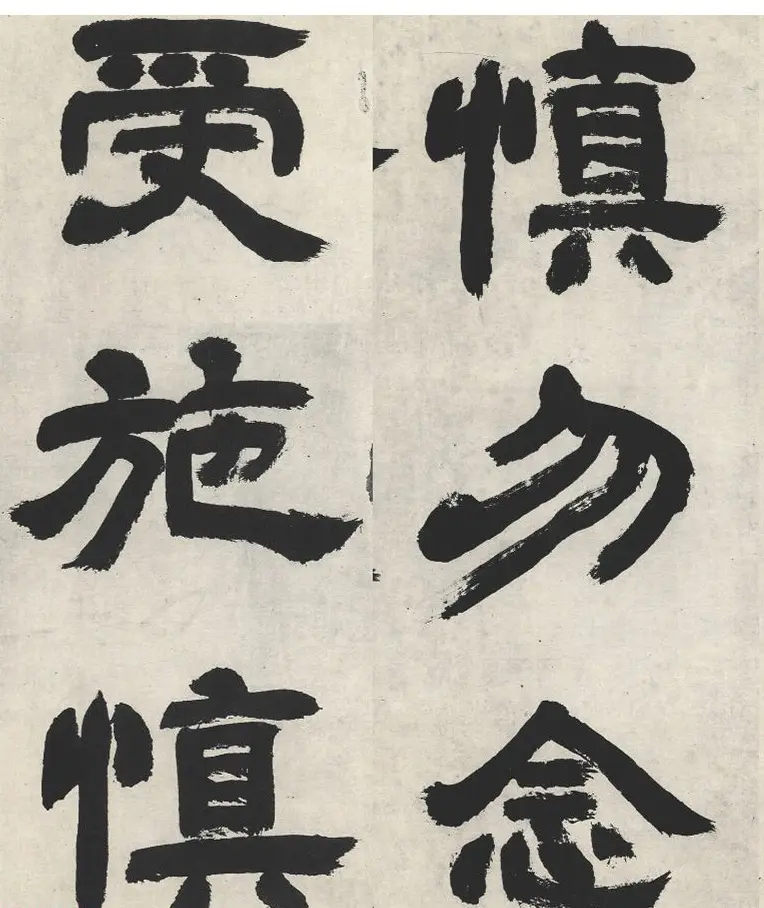 慎勿念
受施慎